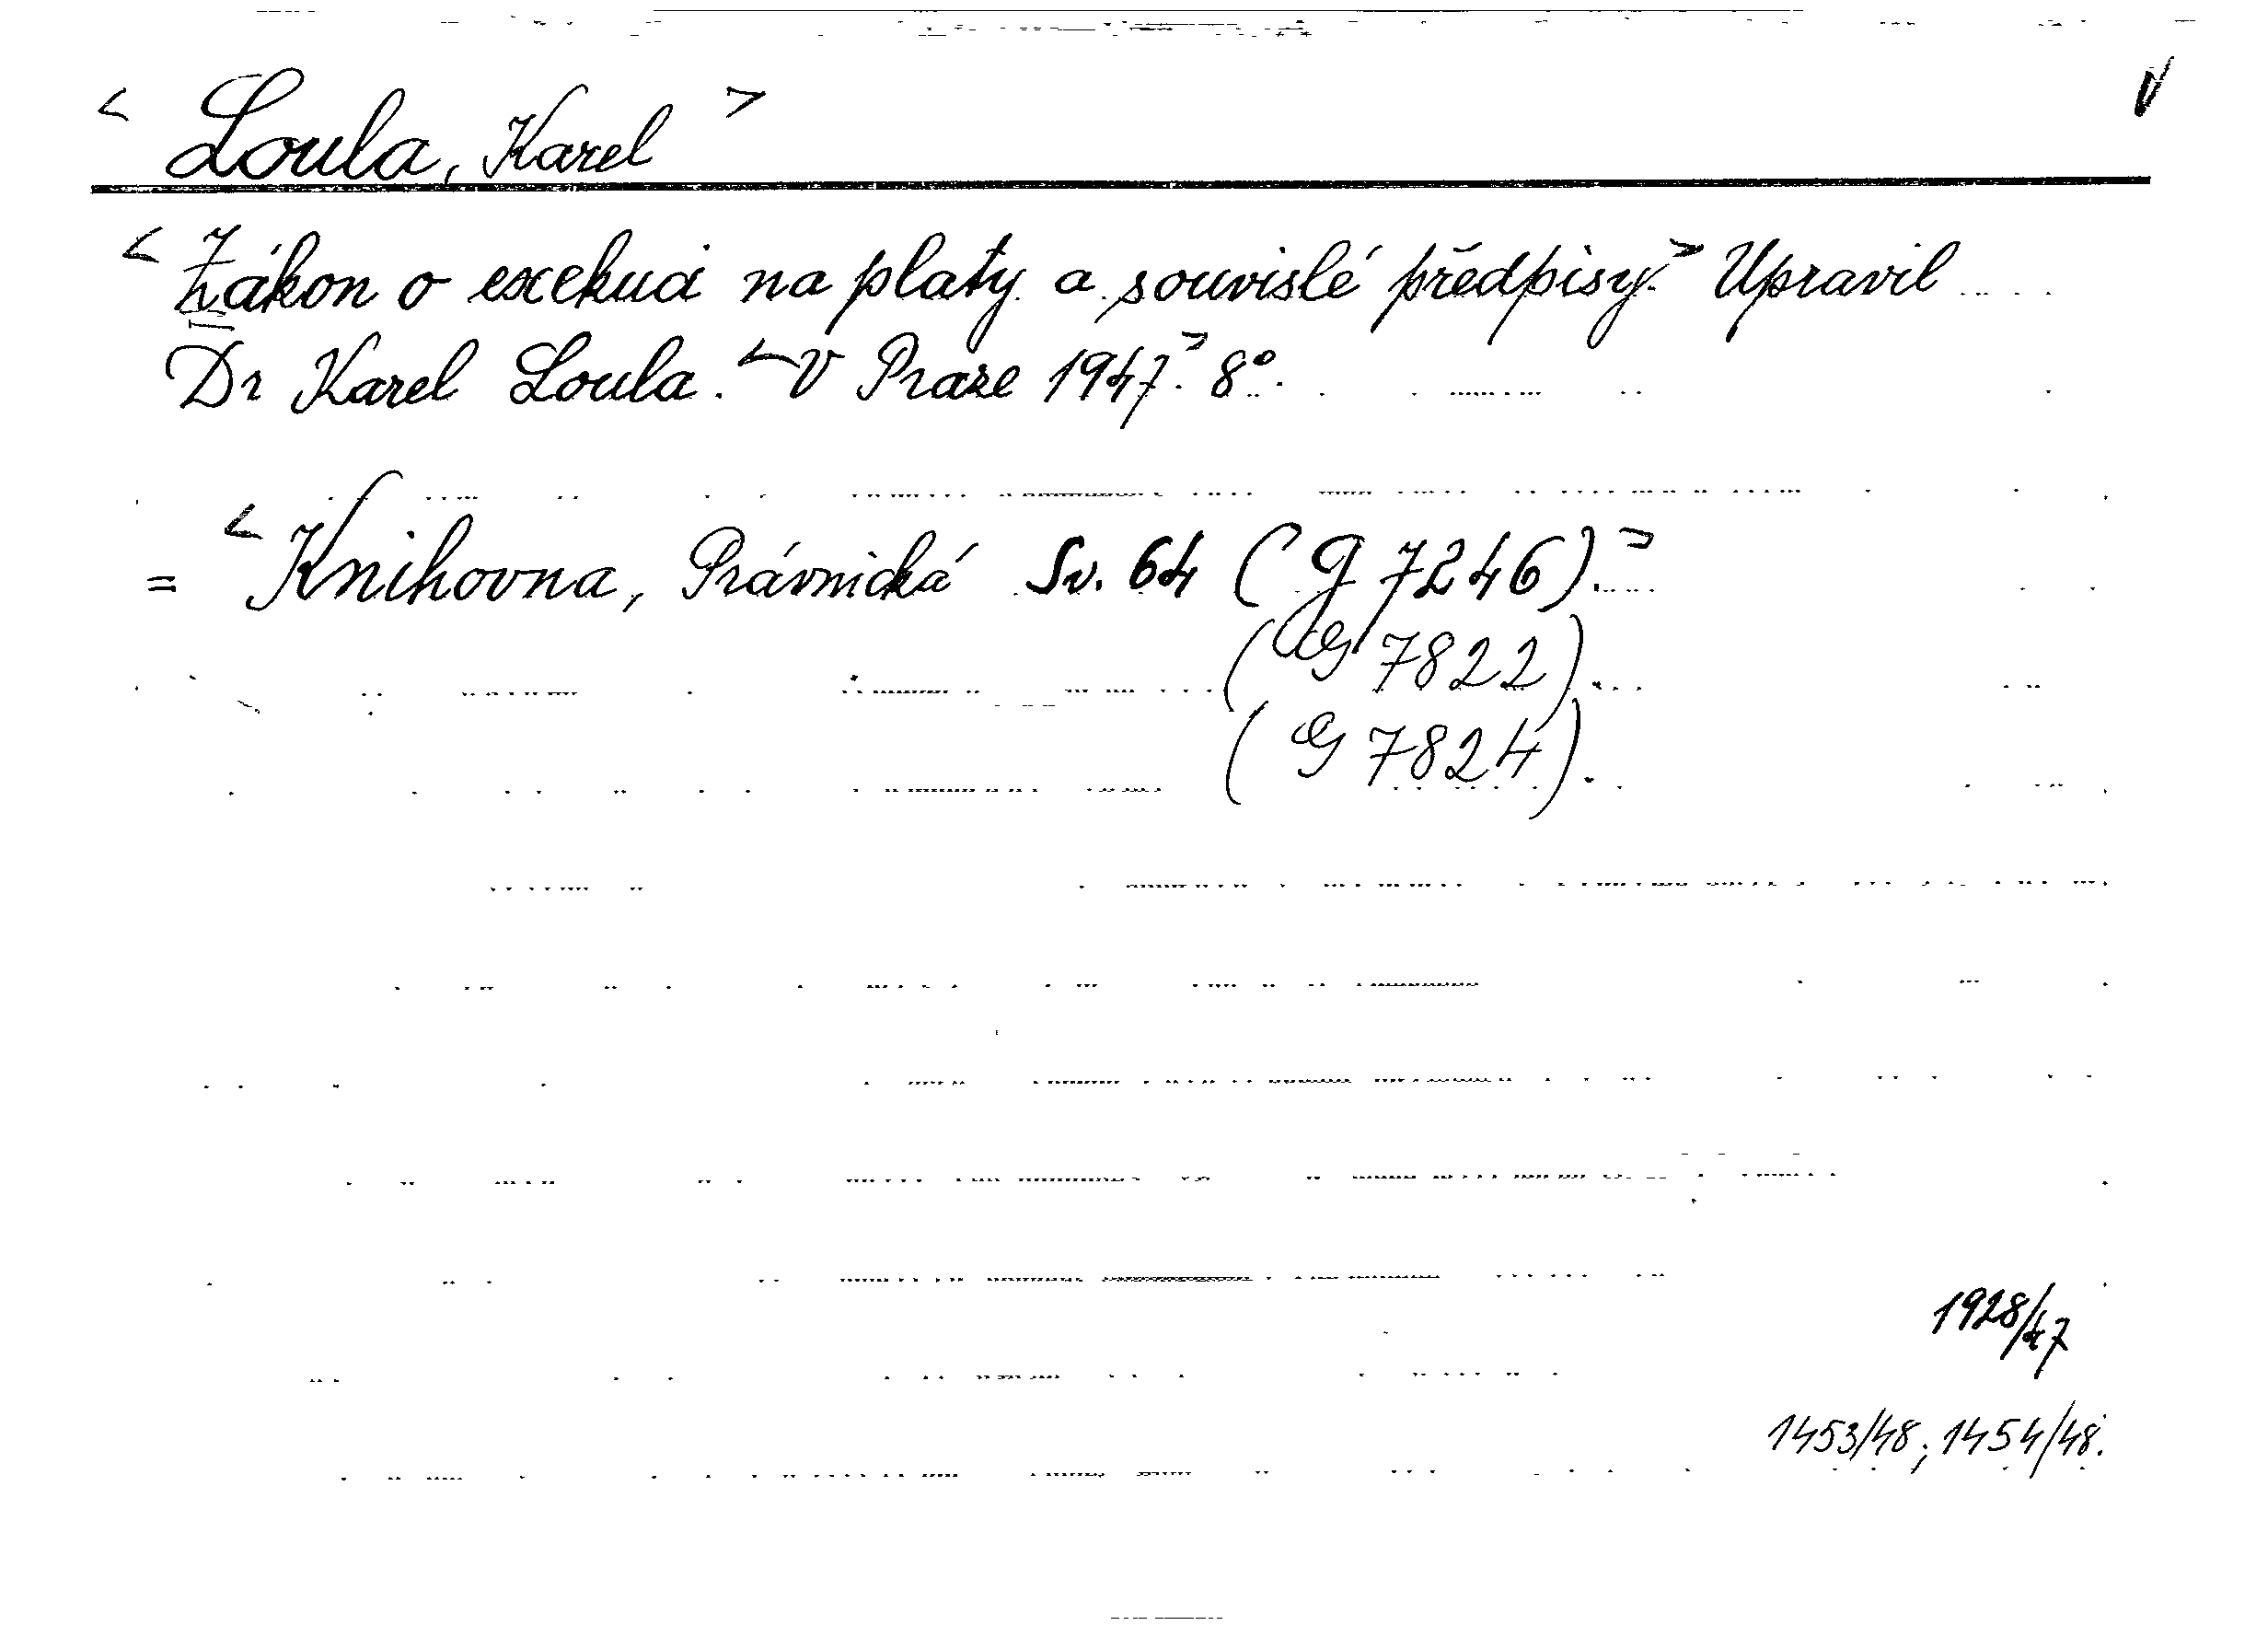 < Loula, Karel > V
< Zákon o exekuci na platy a souvislé předpisy.> Upravil
Dr Karel Loula. < V Praze 1947.> 8°.
= < Knihovna, Právnická Sv. 64 (G 7246).>
(G 7822).
(G 7824).
1928/47
1453/48; 1454/48.